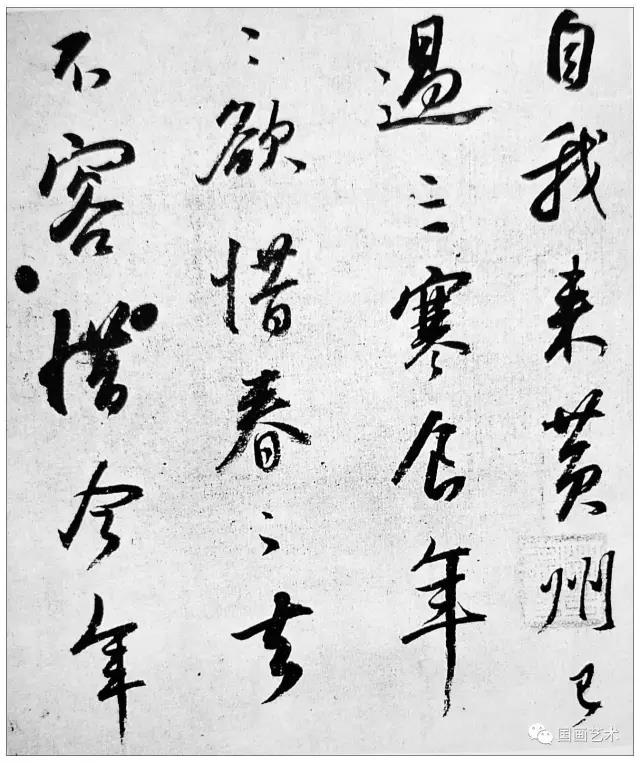 自我来黄州已
過三寒食年
〻欲惜春〻去
不容惜今年
国画艺术